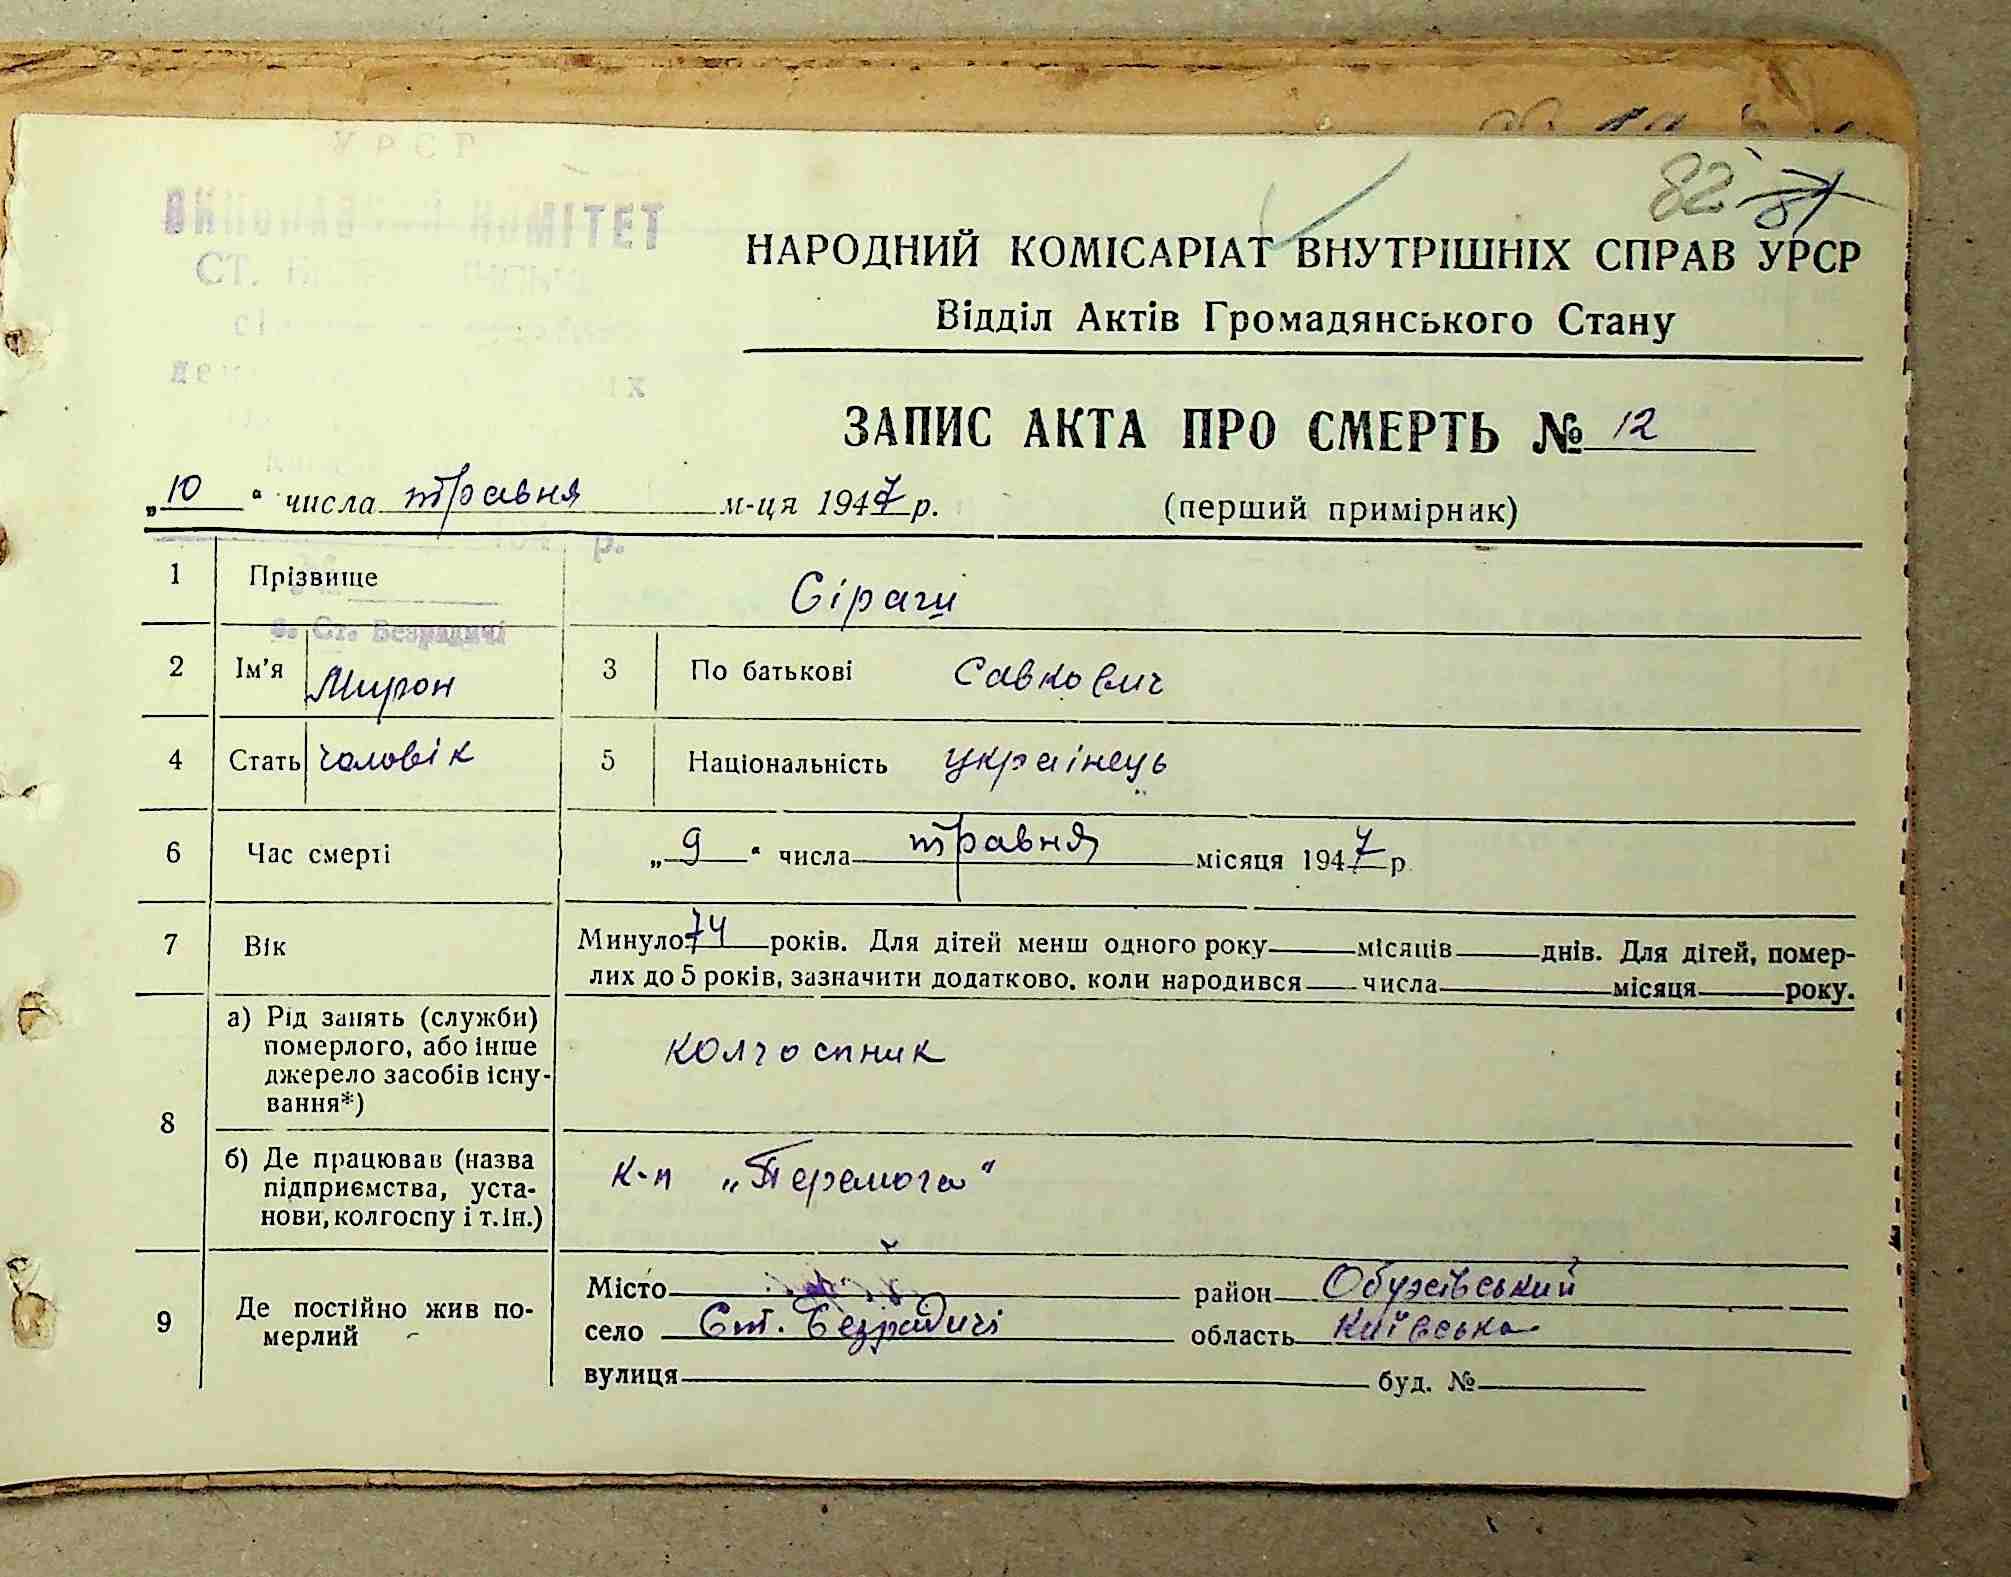 УРСР
ВИКОНАВЧИЙ КОМІТЕТ
СТ.
82 81
НАРОДНИЙ КОМІСАРІАТ ВНУТРІШНІХ СПРАВ УРСР
Відділ Актів Громадянського Стану
ЗАПИС АКТА ПРО СМЕРТЬ № 12
„10“ числа травня м-ця 1947 р. (перший примірник)
р.
1 Прізвище Сіращ
с. Ст. Безрадичі
2 Ім'я Мирон 3 По батькові Савкович
4 Стать чоловік 5 Національність українець
6 Час смерті „9“ числа травня місяця 1947 р
7 Вік Минуло 74 років. Для дітей менш одного року місяців днів. Для дітей, помер-
лих до 5 років, зазначити додатково, коли народився числа місяця року.
8 а) Рід занять (служби)
померлого, або інше
джерело засобів існу-
вання*)
колгоспник
б) Де працював (назва
підприємства, уста-
нови, колгоспу і т. ін.)
к-п „Перемога“
9 Де постійно жив по-
мерлий
Місто район Обухівський
село Ст. Безрадичі область Київська
вулиця буд. №